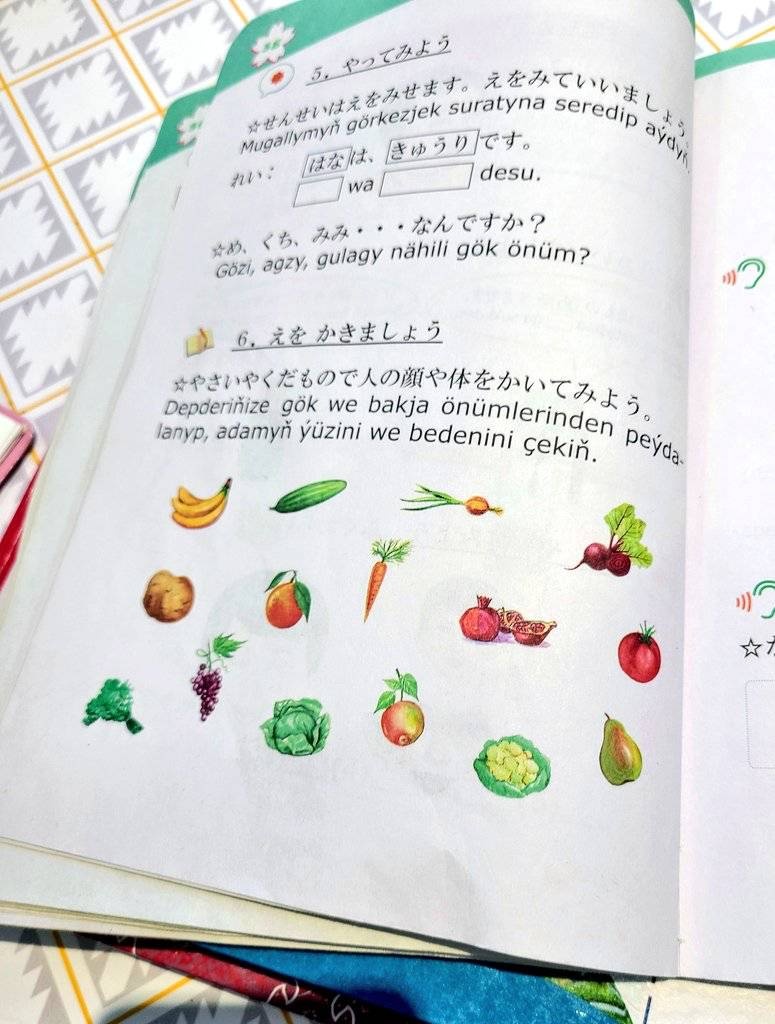 5. やってみよう
☆せんせいはえをみせます。えをみていいましょう。
Mugallymyň görkezjek suratyna seredip aýdyň.
れい： はな は、 きゅうり です。
wa desu.
☆め、くち、みみ・・・なんですか？
Gözi, agzy, gulagy nähili gök önüm?
6. えを かきましょう
☆やさいやくだもので人の顔や体をかいてみよう。
Depderiňize gök we bakja önümlerinden peýda-
lanyp, adamyň ýüzini we bedenini çekiň.